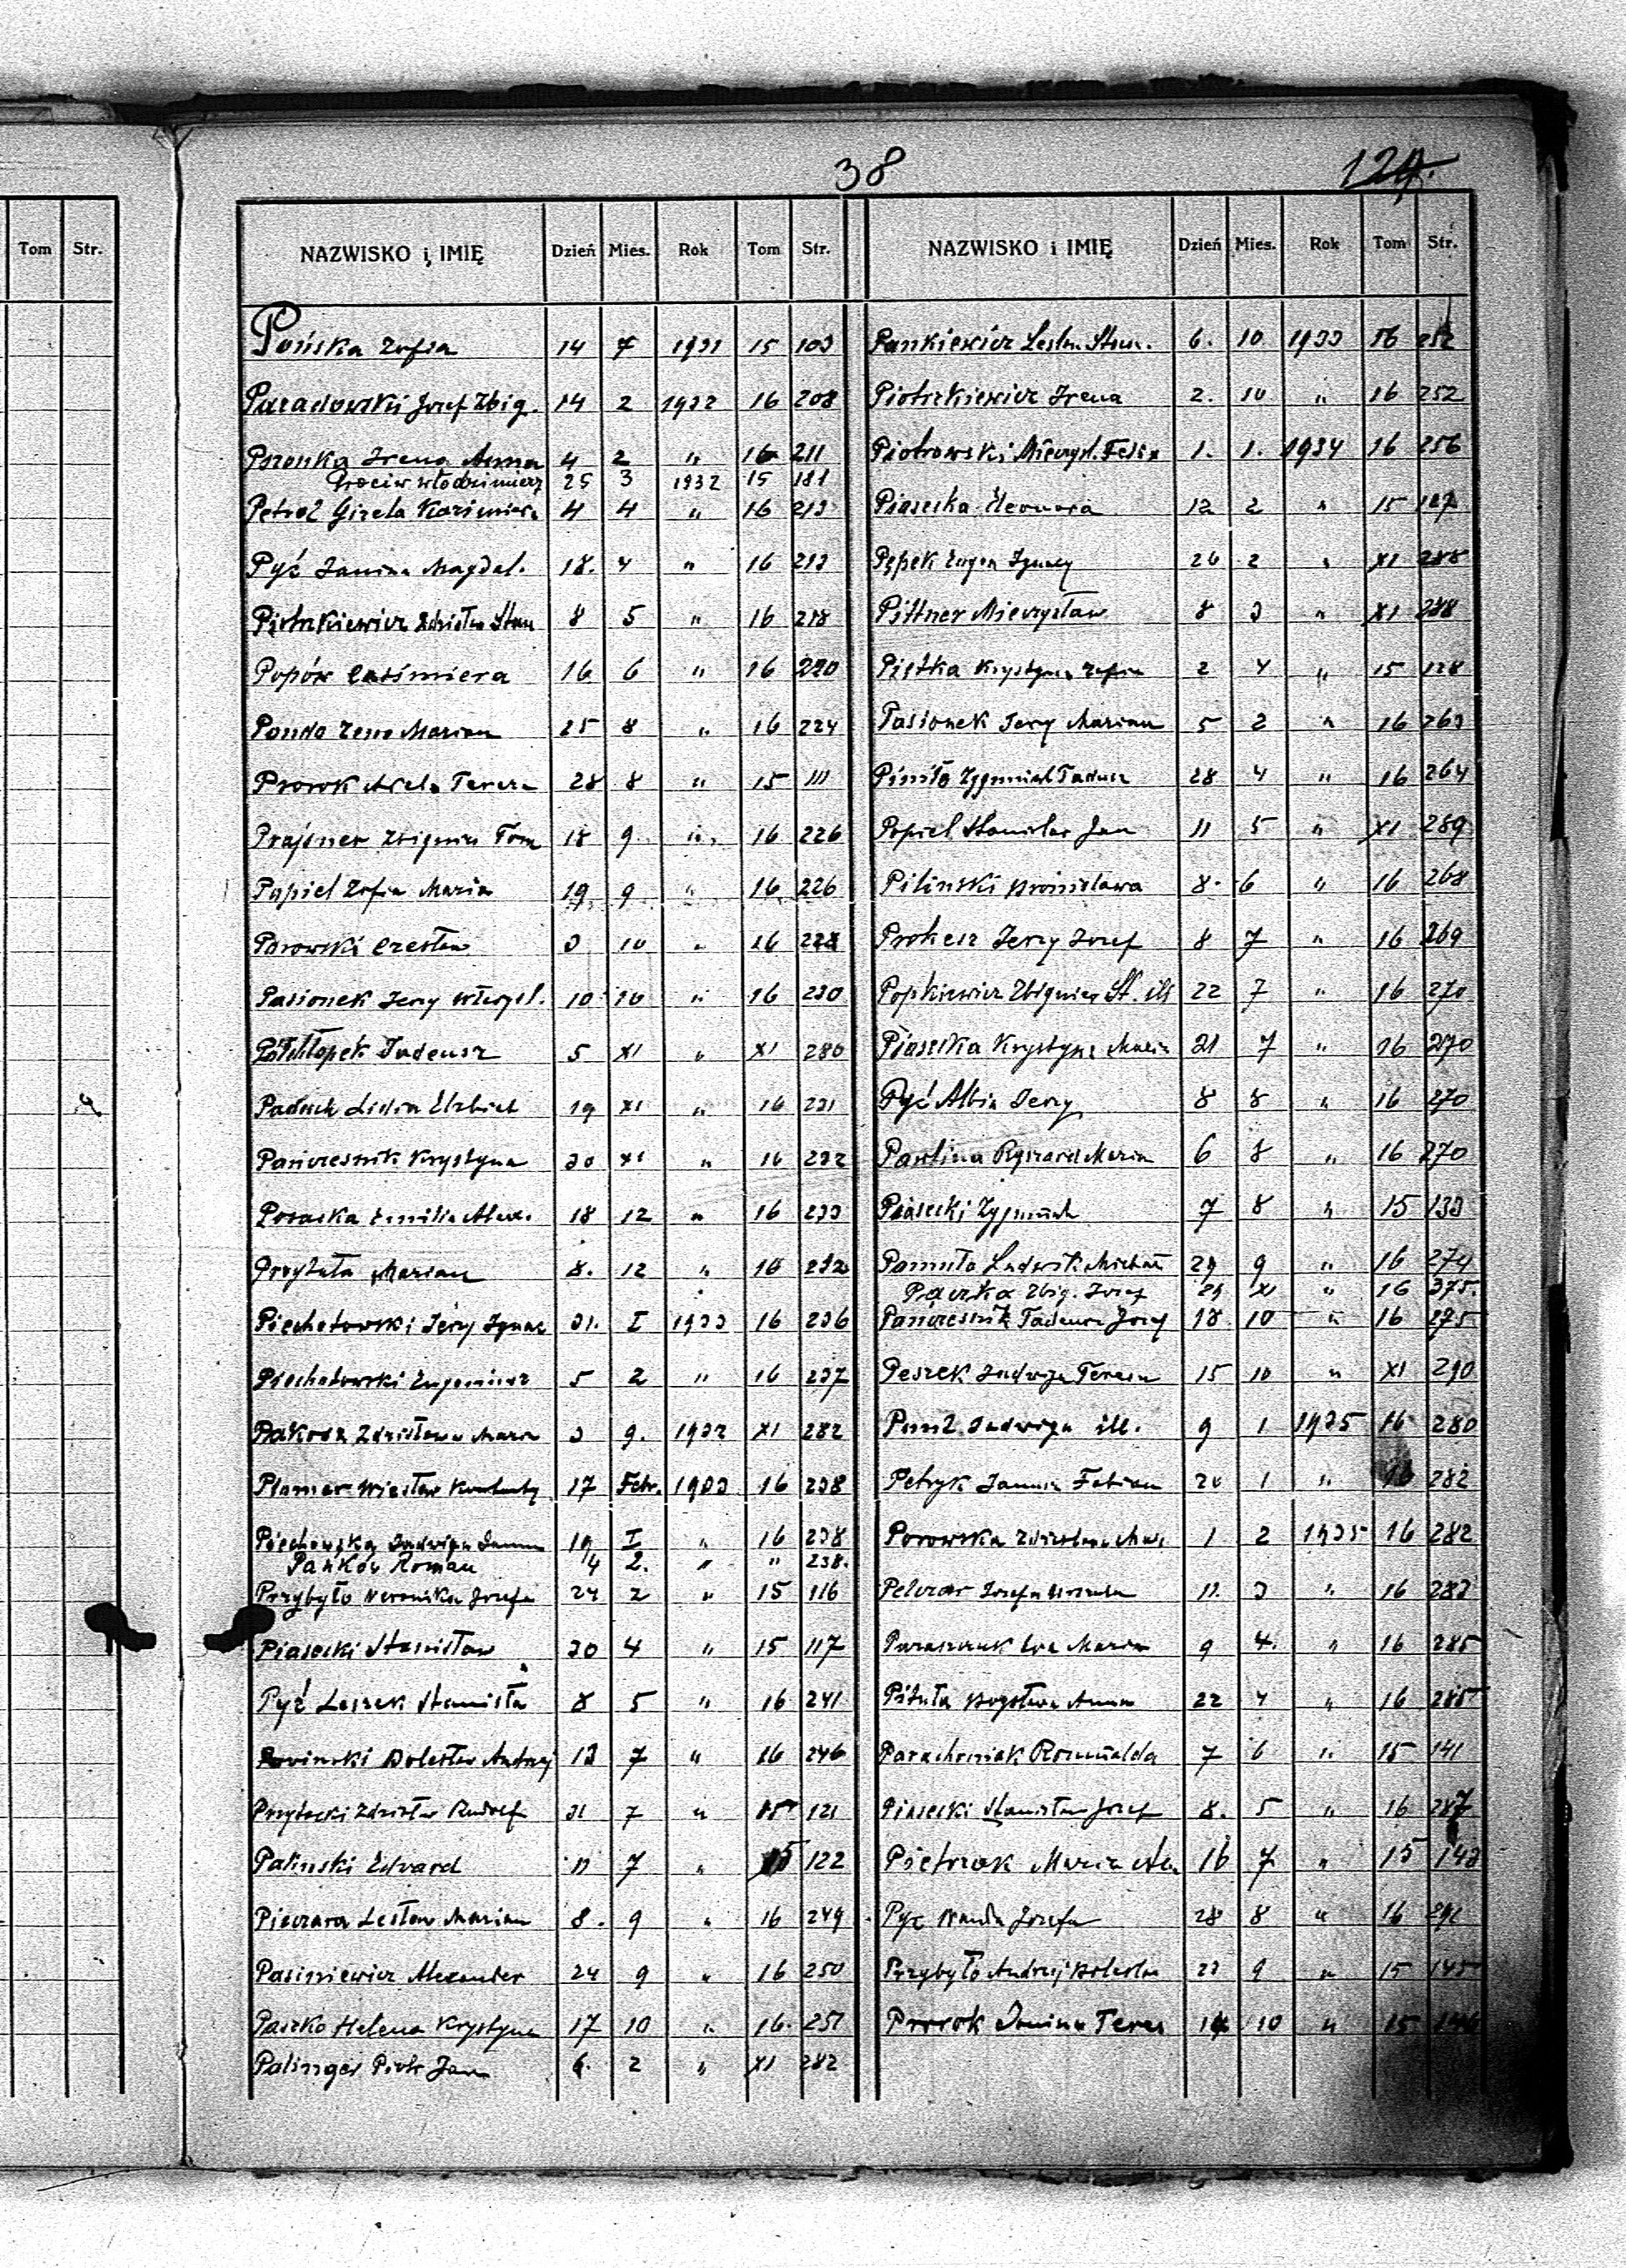 38
124.
Tom Str.
NAZWISKO i IMIĘ Dzień Mies. Rok Tom Str.
Pońska Zofia 14 7 1931 15 103
Paradowski Josef Zbig. 14 2 1932 16 208
Pszonka Irena Anna 4 2 " 16 211
Włodzimierz 25 3 1932 15 181
Gizela Kazimiera 4 4 " 16 213
Pyć Janina Magdal. 18. 4 " 16 213
Piotrkiewicz Zdzisław Stan 8 5 " 16 218
Popów Casimiera 16 6 " 16 220
Zeno Marian 25 8 " 16 224
Prorok Adela Teresa 28 8 " 15 111
Prajsner Zbigniew Tom 18 9. " 16 226
Papiel Zofia Maria 19 9 " 16 226
Porowski Czesław 3 10 " 16 228
Pasionek Jerzy Włczysl. 10 10 " 16 230
Półchłopek Tadeusz 5 XI " XI 280
Paduch Lidia Elzbiet 19 XI " 16 231
Pasieresnik Krystyna 30 XI " 16 232
Emilia Alex. 18 12 " 16 233
Przytuła Marian 8. 12 " 16 232
Piechotowski Jerzy Ignac 31. I 1933 16 236
Piechotowski Eugeniusz 5 2 " 16 237
Pakosz Zdzisława Maria 3 9. 1932 XI 282
Wiesław 17 Febr. 1933 16 238
Piechowska Jadwiga Janina 19 I " 16 238
Pańków Roman 4 2. " " 238.
Przybyło Weronika Josefa 24 2 " 15 116
Piasecki Stanisław 30 4 " 15 117
Pyć Leszek Stanisła 8 5 " 16 241
Bolesław Andrzej 13 7 " 16 246
Przytocki Zdzisław Rudolf 31 7 " 15 121
Palinski Edward 11 7 " 15 122
Pieczara Lesław Marian 8. 9 " 16 249
Pasiniewicz Alexander 24 9 " 16 250
Paszko Helena Krystyna 17 10 " 16. 251
Palinger Piotr Jan 6. 2 " XI 282
NAZWISKO i IMIĘ Dzień Mies. Rok Tom Str.
Pankiewicz Lesław Stan. 6. 10 1933 16 252
Piotrkiewicz Irena 2. 10 " 16 252
Piotrowski Mieczysł. Felix 1. 1. 1934 16 256
Piasecka Eleonora 12 2 " 15 127
Pępek Eugen Ignacy 26 2 " XI 288
Pittner Mieczysław 8 3 " XI 288
Piętka Krystyna Zofia 2 4 " 15 128
Pasionek Jerzy Marian 5 2 " 16 263
Zygmunt Tadeusz 28 4 " 16 264
Popiel Stanislav Jan 11 5 " XI 289
Pilinski Bronislawa 8. 6 " 16 268
Prokesz Jerzy Josef 8 7 " 16 269
Popkiewicz Zbigniew St. ill 22 7 " 16 270
Piasecka Krystyna Maria 21 7 " 16 270
Pyć Albin Jerzy 8 8 " 16 270
Pawlina Ryszard Marian 6 8 " 16 270
Piasecki Zygmunt 7 8 " 15 133
Pamuła Ludwik Michał 29 9 " 16 274
Paczka Zbig. Josef 29 XI " 16 375.
Pasieresnik Tadeusz Josef 18 10 " 16 275
Peszek Jadwiga Teresa 15 10 " XI 290
Jadwiga ill. 9 1 1935 16 280
Petryk Fabian 20 1 " 16 282
Porowska Zdzisława 1 2 1935 16 282
Pelczar Josefa Urszula 11 3 " 16 283
Paraszczuk Ewa Maria 9 4. " 16 285
Pituła Bogsława Anna 22 4 " 16 285
Parachoniak Romualda 7 6 " 15 141
Piasecki Stanisław Josef 8. 5 " 16 287
Pietrzak Maria 16 7 " 15 143
Pyz Wanda Josefa 28 8 " 16
Przybyło Andrzej Bolesław 23 9 " 15 145
Prorok Janina Teres 14 10 " 15 146